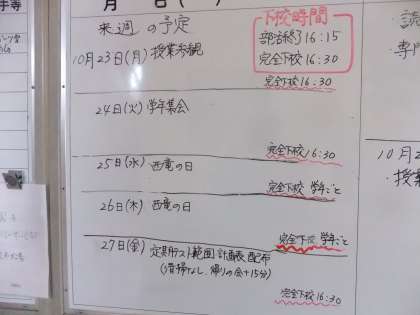 手等
月 日
来週の予定
下校時間
部活終了16:15
完全下校16:30
10月23日(月) 授業参観
完全下校16:30
24日(火) 学年集会
完全下校16:30
25日(水) 西竜の日
完全下校 学年ごと
26日(木) 西竜の日
完全下校 学年ごと
27日(金) 定期テスト範囲 計画表 配布
(清掃なし、帰りの会+15分)
完全下校16:30
読
専門
10月2
・授業